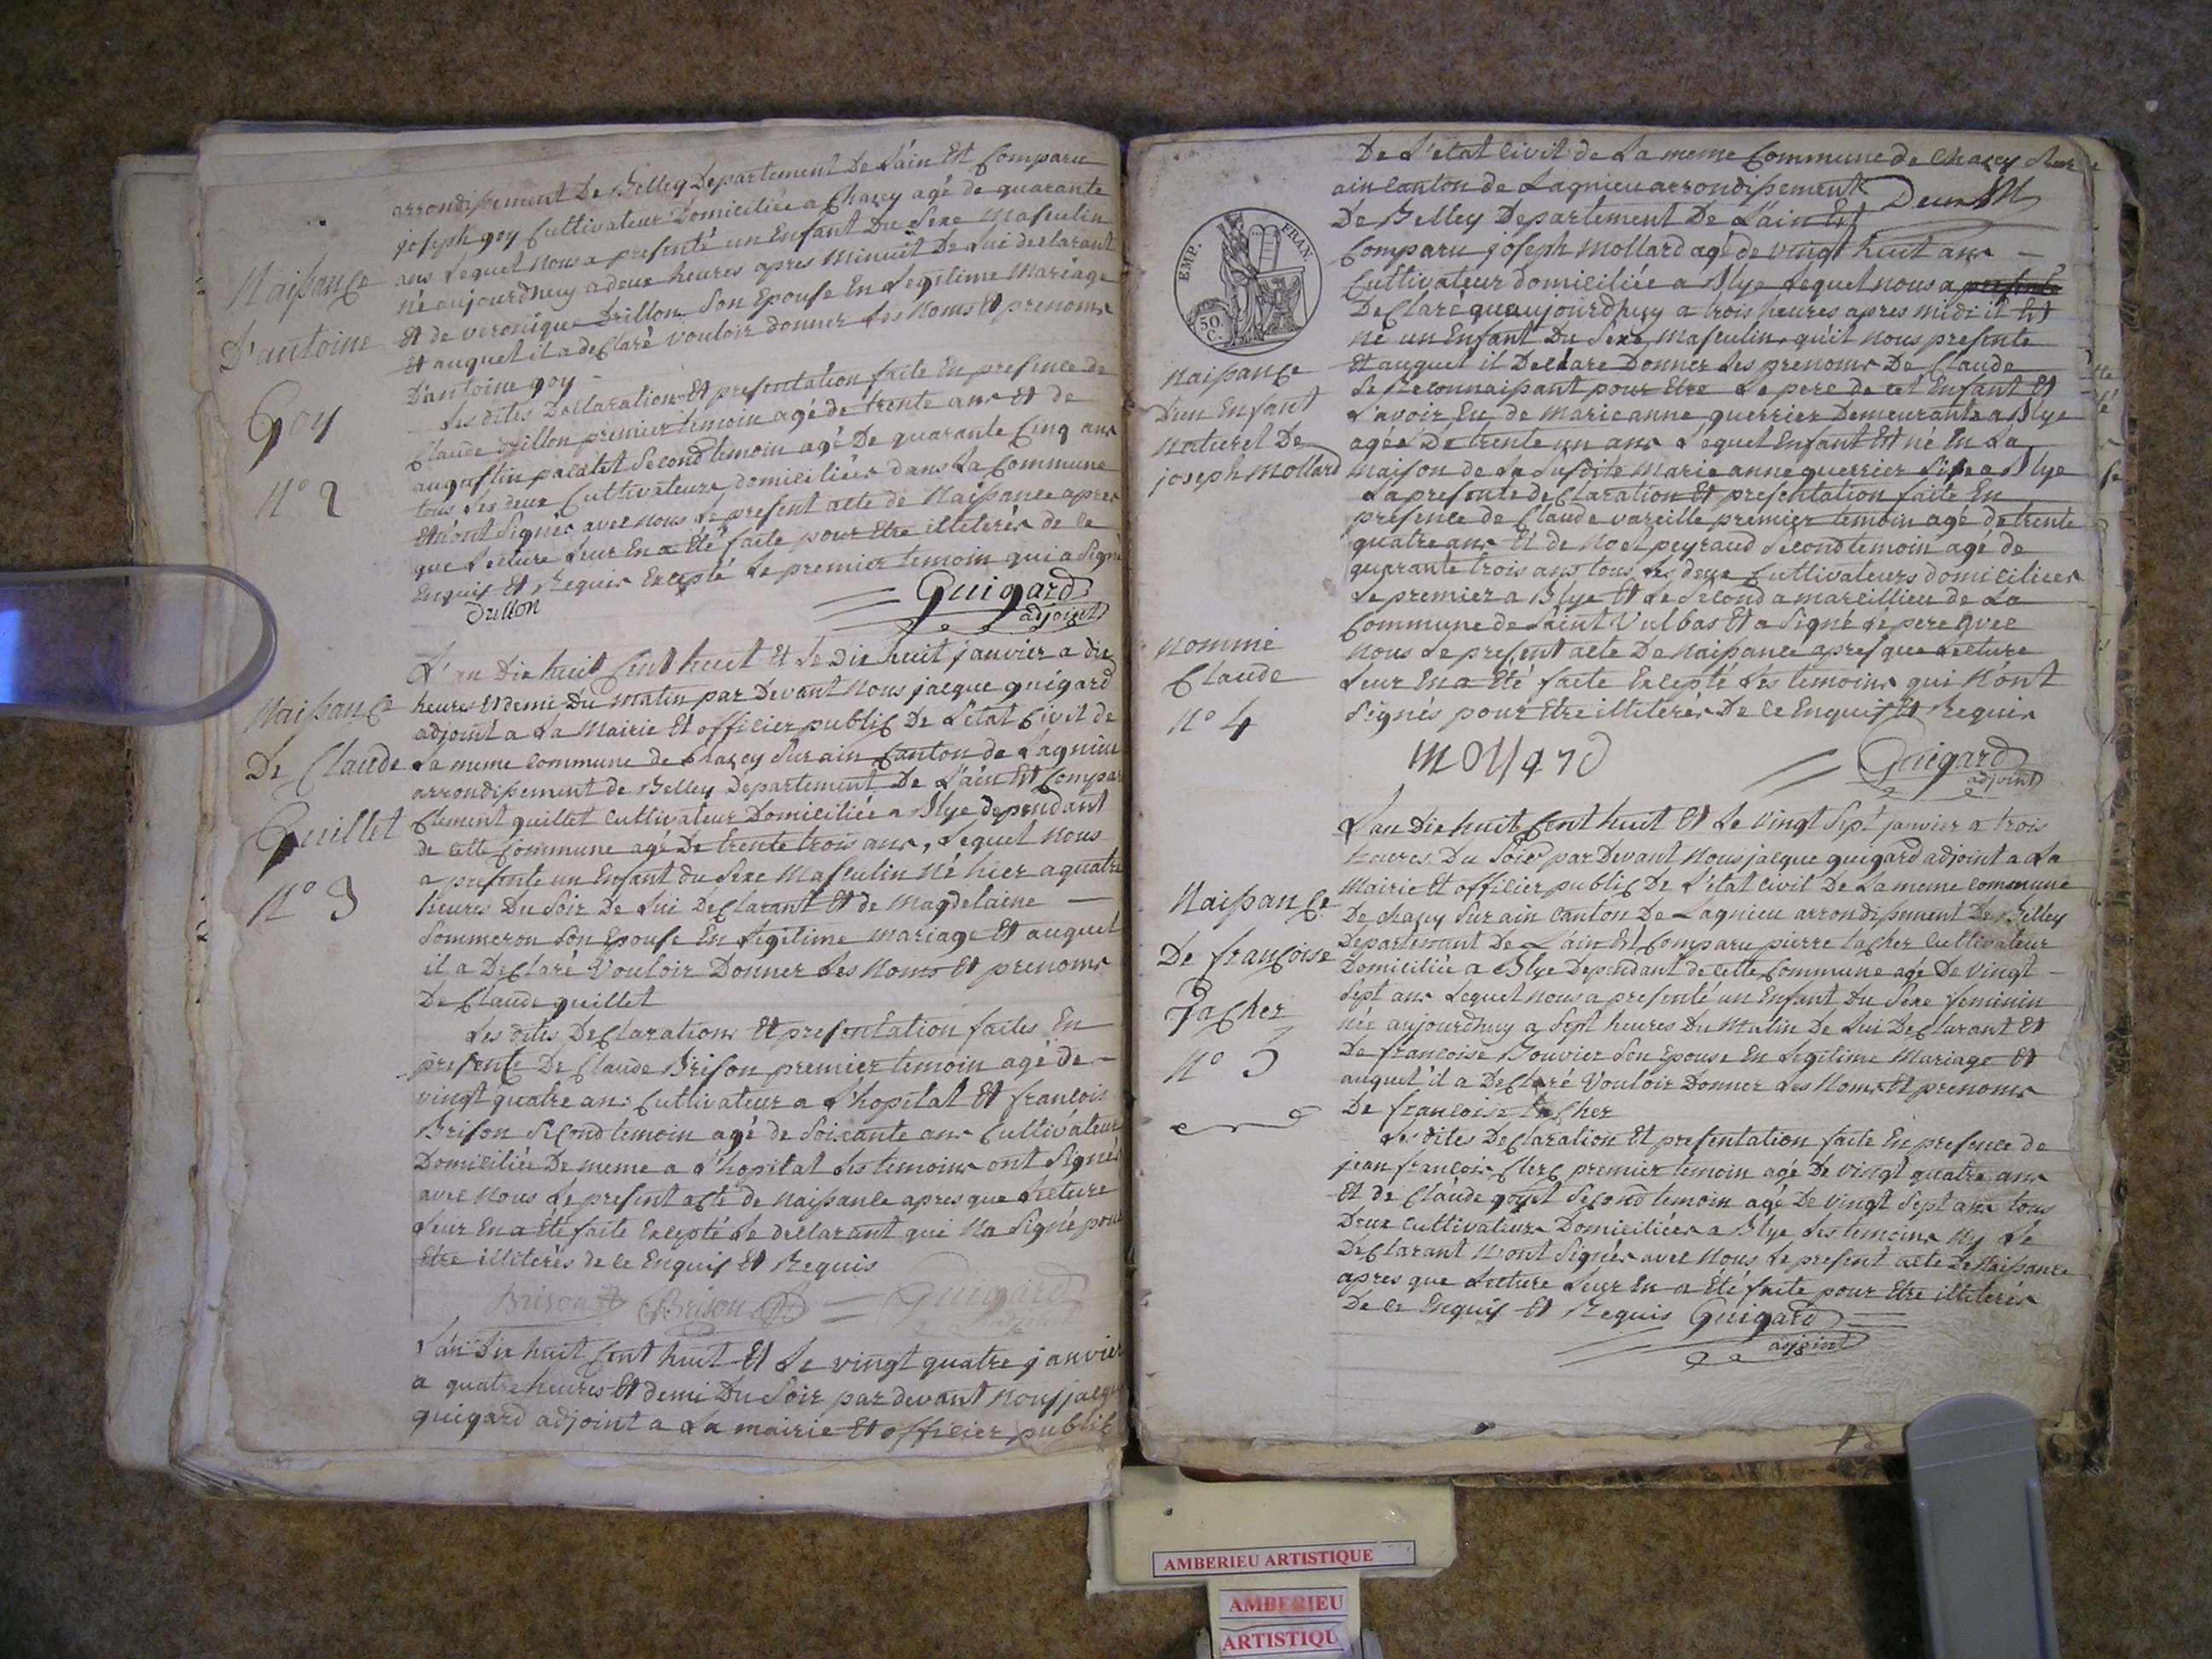 arrondissement De Belley Departement De L'ain Est Comparu
joseph goy Cultivateur Domiciliée a Chazey agé de quarante
ans Lequel Nous a presenté un Enfant Du Sexe Masculin
né aujourdhuy a deux heures apres Minuit De Lui declarant
Et de veronique Drillon Son Epouse En Legitime Mariage
Et auquel il a declaré vouloir donner Les Noms Et prenoms
D'antoine goy -
Les dites Declaration Et presentation faite En presence de
Claude Drillon premier temoin agé de trente ans Et de
augustin pacalet Second temoin agé De quarante Cinq ans
tous Les deux Cultivateurs domiciliées dans La Commune
Et n'ont Signés avec nous Le present acte de Naissance apres
que Lecture Leur En a Eté faite pour Etre illiterés de ce
Enquis Et Requis Excepté Le premier temoin qui a Signé
Drillon
Guigard
adjoint
Naissance
D'antoine
Goy
N° 2
L'an Dix huit Cent huit Et Le Dix huit janvier a dix
heures Et demi Du Matin par Devant Nous jacque guigard
adjoint a La Mairie Et officier public De L'état Civil de
La meme Commune de Chazey Sur ain Canton de Lagnieu
arrondissement de Belley Departement De L'ain Est Compar
Clement guillet Cultivateur Domiciliée a Blye dependant
de cette Commune agé De trente trois ans, Lequel Nous
a presenté un Enfant du Sexe Masculin Né hier a quatre
heures Du Soir De Lui Declarant Et de Magdelaine
Sommeron Son Epouse En Legitime Mariage Et auquel
il a Declaré Vouloir Donner Les Noms Et prenoms
De Claude guillet
Les dites Declarations Et presentation faites En
presence De Claude Brison premier temoin agé de -
vingt quatre ans Cultivateur a L'hopital Et francois
Brison Second temoin agé de Soixante ans Cultivateur
Domiciliée De meme a L'hopital Les temoins ont Signés
avec Nous Le present acte de Naissance apres que Lecture
Leur En a Eté faite Excepté Le declarant qui Na Signé pour
Etre illiterés de ce Enquis Et Requis
Brison Brison Guigard
Naissance
De Claude
Guillet
N° 3
L'an Dix huit Cent huit Et Le vingt quatre janvier
a quatre heures Et demi Du Soir par devant Nous jacque
guigard adjoint a La mairie Et officier public
De L'etat Civil de La meme Commune de Chazey Sur
ain Canton de Lagnieu arrondissement
De Belley Departement De L'ain Est
Comparu joseph Mollard agé de vingt huit ans -
Cultivateur domiciliée a Blye Lequel nous a presenté
Declaré quaujourdhuy a trois heures apres midi il Est
né un Enfant Du Sexe Masculin, qu'il Nous presente
Et auquel il Declare Donner Les prenoms De Claude
Se Reconnaissant pour Etre Le pere de cet Enfant Et
L'avoir Eu de Marie anne guerrier Demeurante a Blye
agée De trente un ans Lequel Enfant Est né En La
Maison de La Susdite Marie anne guerrier Sise a Blye
La presente declaration Et presentation faite En
presence de Claude vareille premier temoin agé de trente
quatre ans Et de Noel peyraud Second temoin agé de
quarante trois ans tous Les deux Cultivateurs domiciliées
Le premier a Blye Et Le Second a marcillieu de La
Commune de Saint Vulbas Et a Signé Le pere avec
Nous Le present acte De Naissance apres que Lecture
Leur En a Eté faite Excepté Les temoins qui N'ont
Signés pour Etre illiterés De ce Enquis Et Requis
Mollard
Guigard
adjoint
EMP. FRAN.
50. C.
Naissance
D'un Enfant
Naturel De
joseph Mollard
Nommé
Claude
N° 4
L'an Dix huit Cent huit Et Le vingt Sept janvier a trois
heures Du Soir par Devant Nous jacque guigard adjoint a La
Mairie Et officier public De L'etat Civil De La meme commune
De chazey Sur ain Canton De Lagnieu arrondissement De Belley
Departement De L'ain Est Comparu pierre tacher Cultivateur
Domiciliée a Blye Dependant de cette Commune agé De vingt -
Sept ans Lequel Nous a presenté un Enfant Du Sexe feminin
née aujourdhuy a Sept heures Du Matin De Lui Declarant Et
De francoise Bouvier Son Epouse En Legitime Mariage Et
auquel il a Declaré Vouloir Donner Les Noms Et prenoms
De francoise tacher
Les dites Declaration Et presentation faite En presence de
jean francois Clerc premier temoin agé De vingt quatre ans
Et de Claude goyet Second temoin agé De Vingt Sept ans tous
Deux Cultivateurs Domiciliées a Blye Les temoins Ny Le
Declarant N'ont Signés avec Nous Le present acte De Naissance
apres que Lecture Leur En a Eté faite pour Etre illiterés
De ce Enquis Et Requis Guigard
adjoint
Naissance
De françoise
Tacher
N° 5
AMBERIEU ARTISTIQUE
AMBERIEU
ARTISTIQU